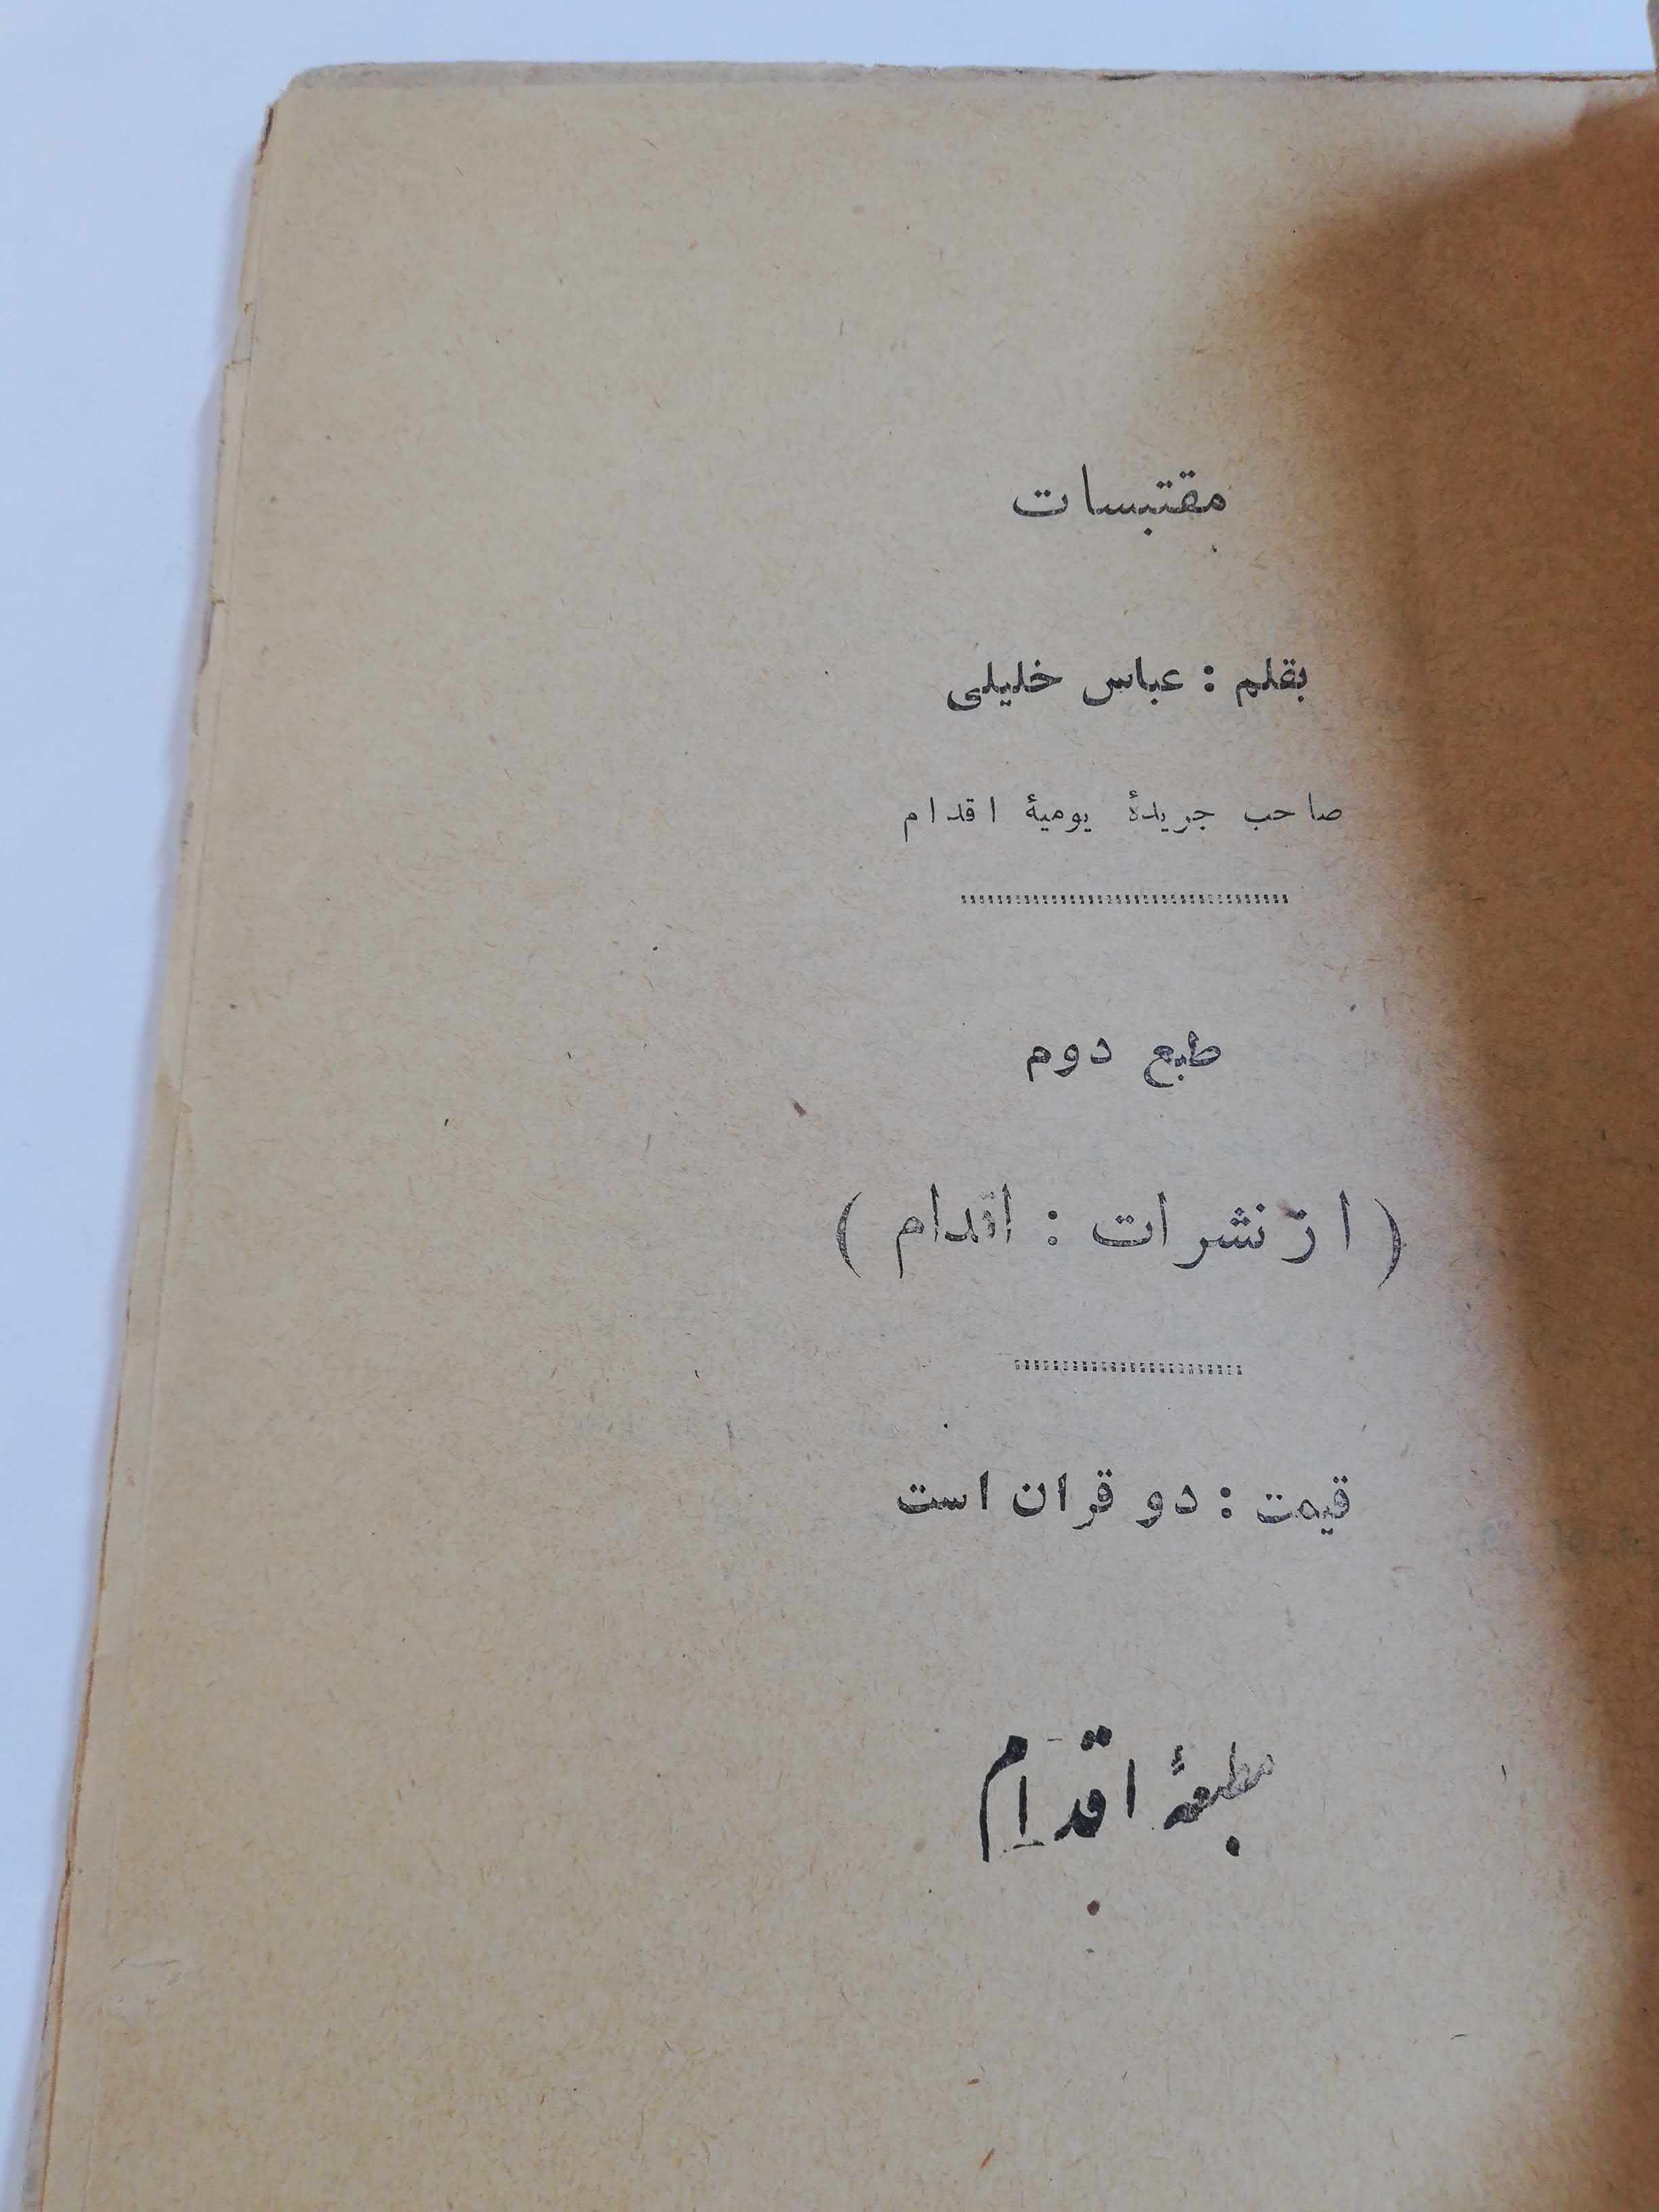 مقتبسات
بقلم : عباس خلیلی
صاحب جریدهٔ یومیهٔ اقدام
طبع دوم
( از نشرات : اقدام )
قیمت : دو قران است
مطبعهٔ اقدام